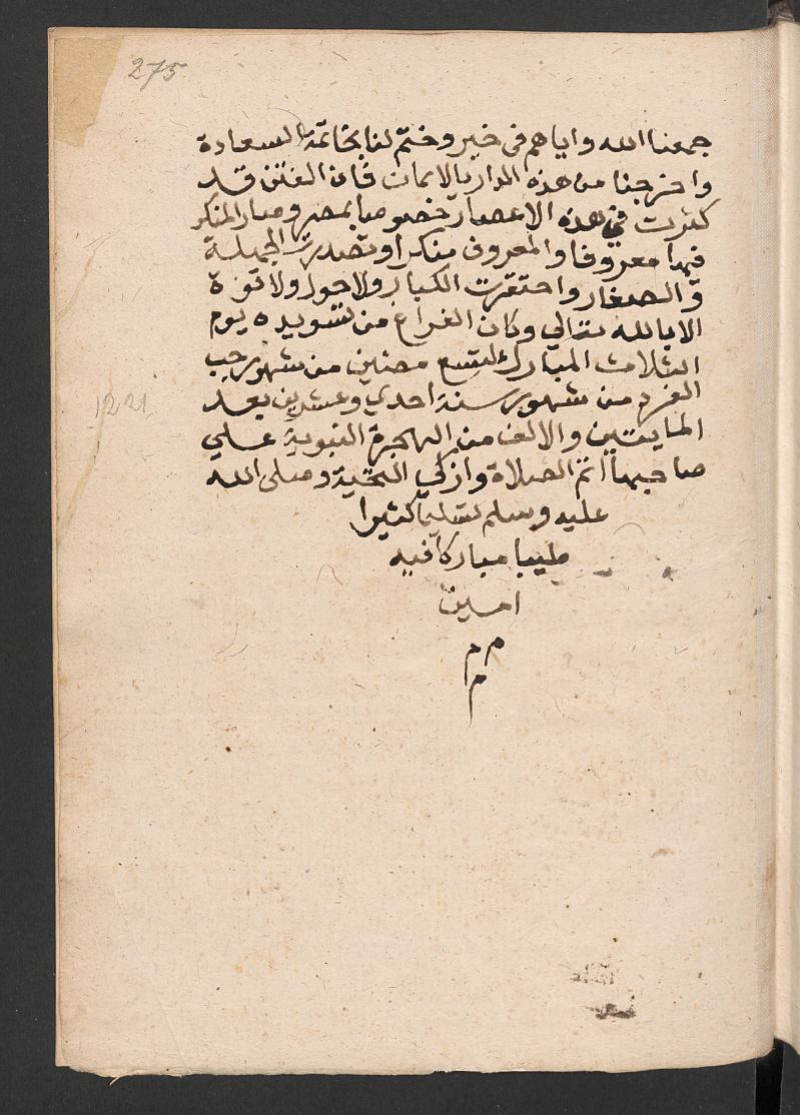 275
جمعنا الله واياهم في خير وختم لنا بخاتمة السعادة
واخرجنا من هذه الدار بالايمان فان الفتن قد
كثرت في هذه الاعصار خصوصا بمصر وصار المنكر
فيها معروفا والمعروف منكرا وتصدرت الجهلة
والصغار واحتقرت الكبار ولا حول ولا قوة
الا بالله تعالي وكان الفراغ من تسويده يوم
الثلاث المبارك لتسع مضين من شهر رجب
الفرد من شهور سنة احدي وعشرين بعد
1221
المايتين والالف من الهجرة النبوية علي
صاحبها اتم الصلاة وازكي التحية وصلى الله
عليه وسلم تسليما كثيرا
طيبا مباركا فيه
امين
م م
م